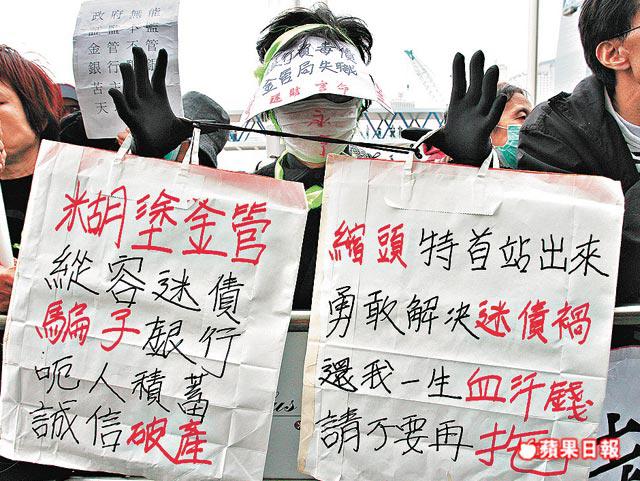 政府無能
金管
銀行
苦
天
銀行賣毒債
金管局失職
糊塗金管
縱容迷債
騙子銀行
呃人積蓄
誠信破產
縮頭特首站出來
勇敢解決迷債禍
還我一生血汗錢
請不要再拖
蘋果日報